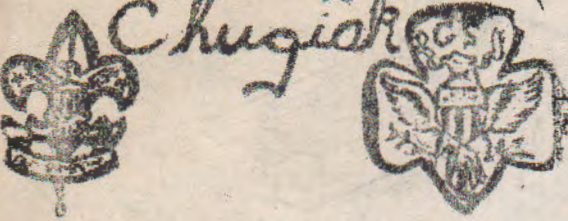 Chugiak
GS